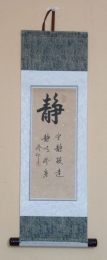 静
宁静致远
静以修身